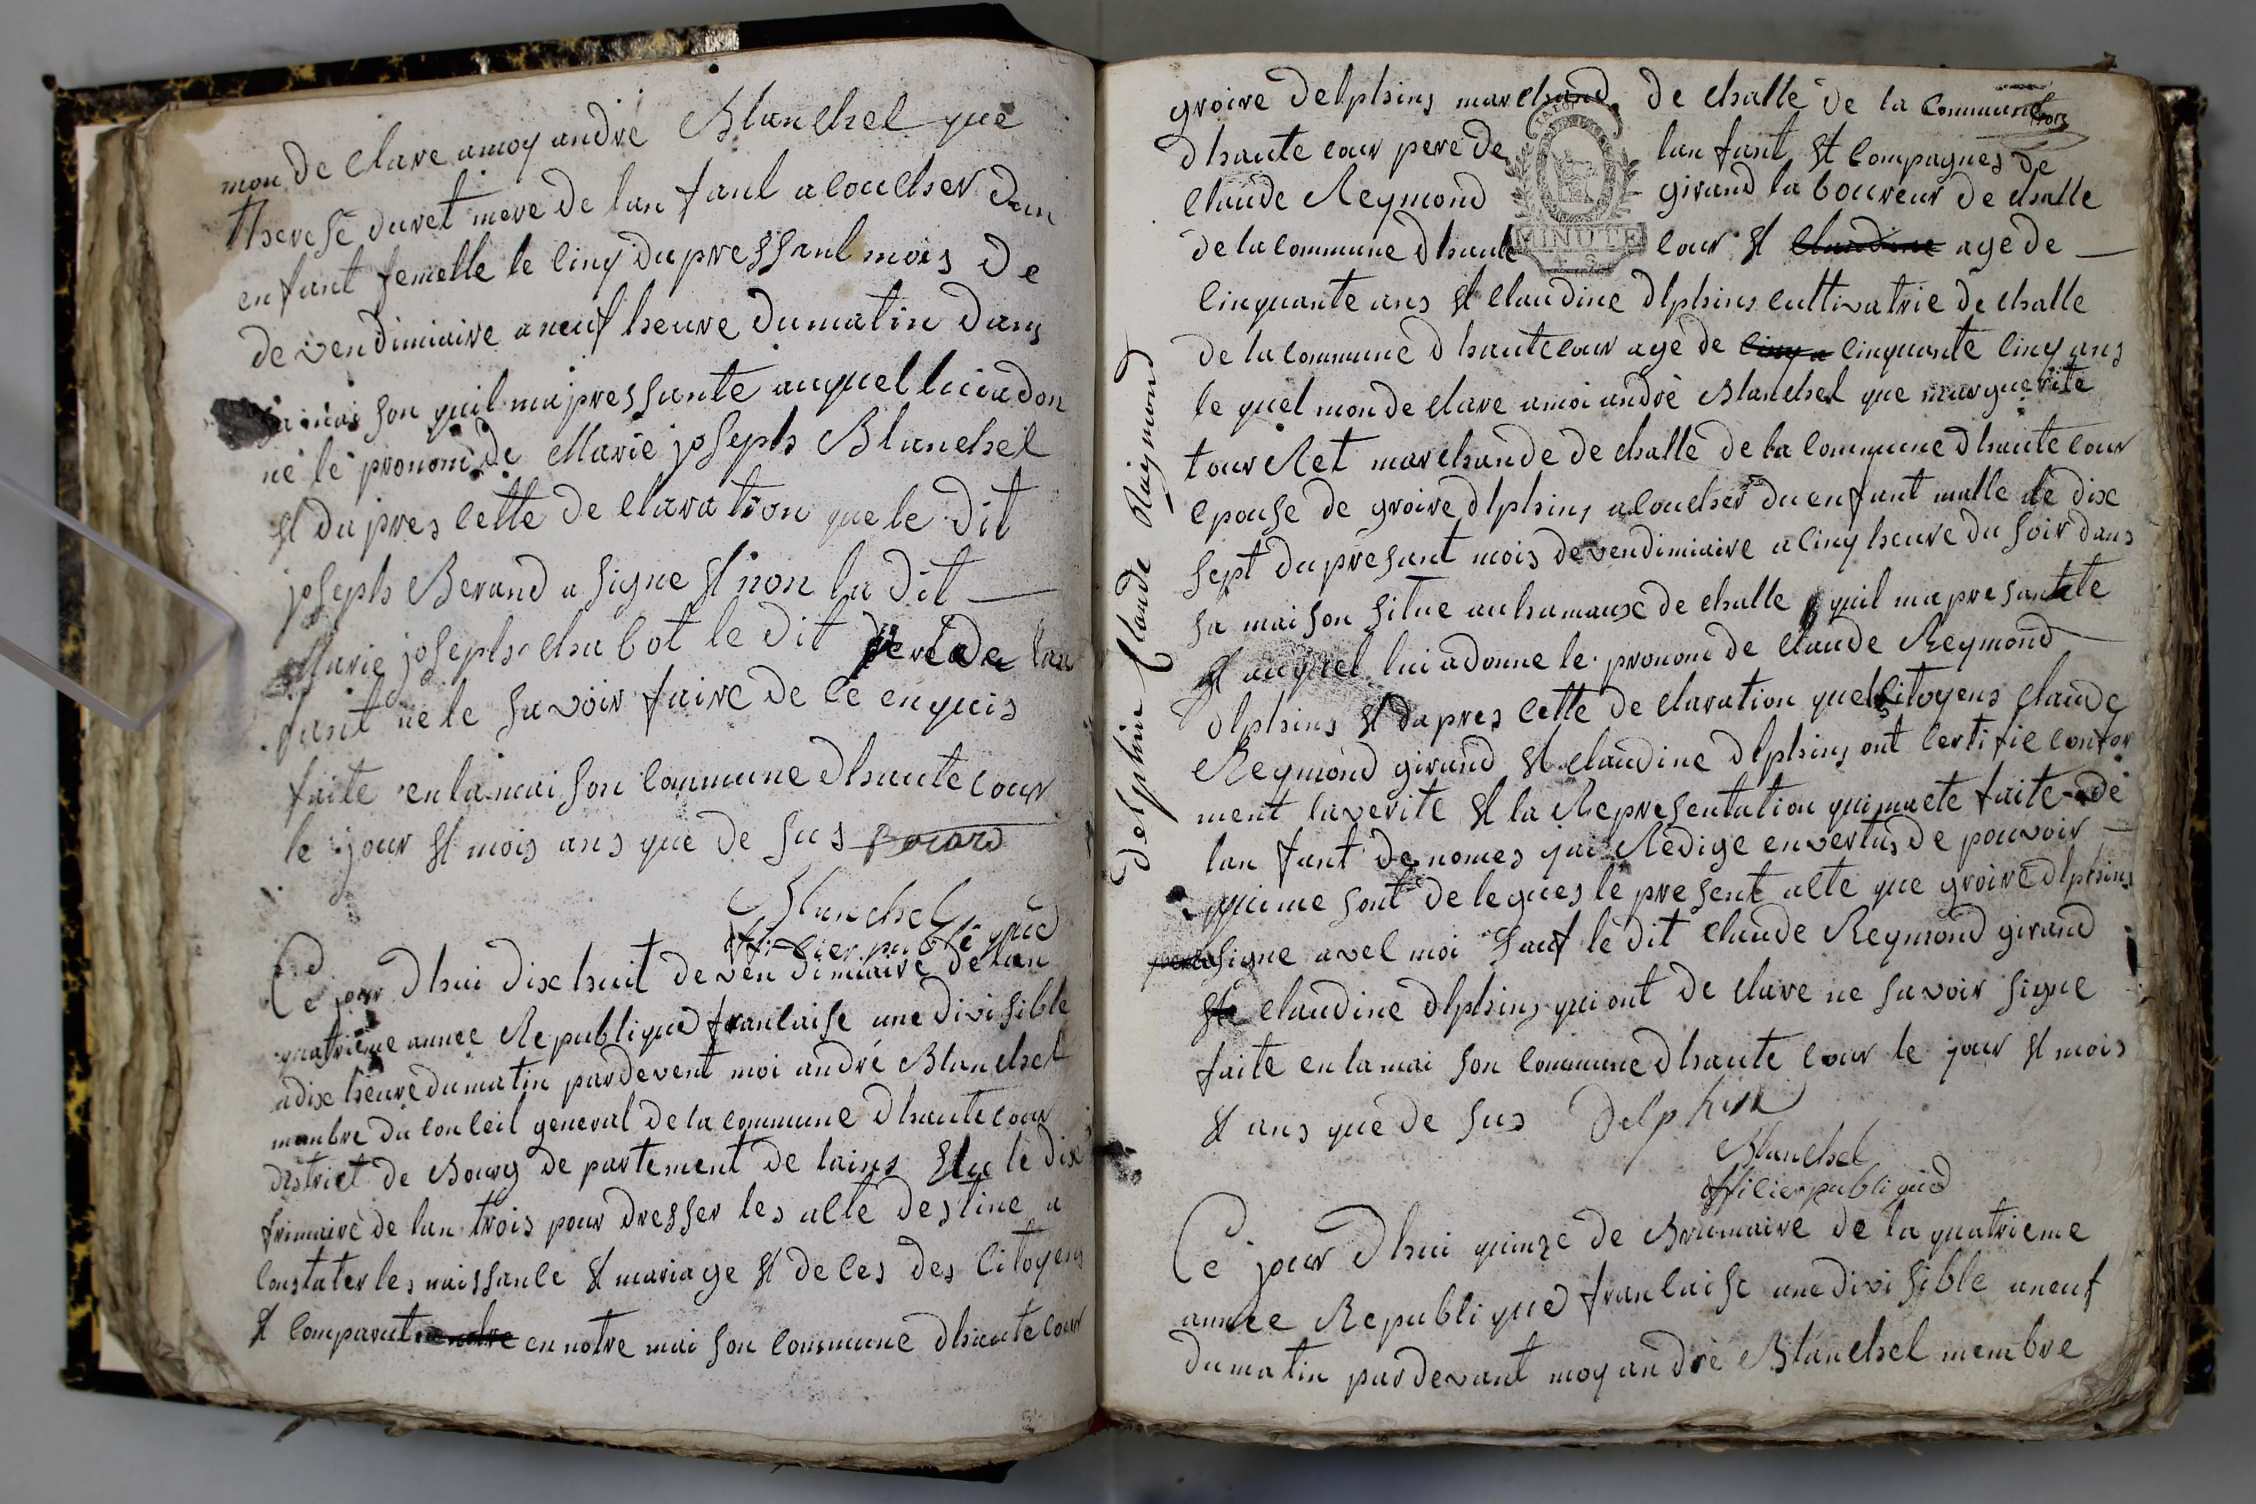 mon de clare a moy andré Blanchet que
therese duret mere de lan fant acoucher dun
enfant femelle le cinq du pressant mois de
de vendimiaire a neuf heure du matin dans
sa mai son quil ma pressante auquel lui a don
ne le pronom de Marie joseph Blanchet
et da pres cette de claration que le dit
joseph Berand a signe et non la dit
Marie joseph chabot le dit pere de lan
fant ne le savoir faire de ce enquis
faite en la mai son commune dhaute cour
le jour et mois ans que de sus
Blanchet
officier publique
Ce jour dhui dix huit de ven dimiaire de lan
quatrieme annee Republique francaise une divisible
a dix heure du matin par devent moi andré Blanchet
manbre du conceil general de la commune dhaute cour
district de Bourg de partement de lains elu le dix
frimaire de lan trois pour dresser les acte destine a
constater les naissance et mariage et de ces des citoyens
et comparut en notre mai son commune dhaute cour
groire delphins marchand de challe de la commune
dhaute cour pere de lan fant et compagnes de
claude Reymond girand la boureur de challe
de la commune dhaute cour et claudine age de
MINUTE
cinquante ans et claudine dlphins cultivatrie de challe
de la commune dhaute cour age de cinq a cinquante cinq ans
le quel mon de clare a moi andré Blanchet que marguerite
tour Ret marchande de challe de la commune dhaute cour
epouse de groire dlphins acoucher du enfant malle le dix
sept du presant mois de vendimiaire a cinq heure du soir dans
sa mai son situe au hamaux de challe quil ma presantete
et auquel lui a donne le pronom de claude Reymond
dlphins et da pres cette de claration quel citoyens claude
Reymond girand et claudine dlphins ont certifie confor
ment la verite et la Representation qui ma ete faite de
lan fant denomes jai Redige en vertus de pouvoir
qui me sont delegues le present acte que groire dlphins
signe avec moi sauf le dit claude Reymond girand
et claudine dlphins qui ont de clare ne savoir signe
faite en la mai son commune dhaute cour le jour et mois
et ans que de sus Delphin
Blanchet
officier publique
Ce jour dhui quinze de Brumaire de la quatrieme
annee Republique francaise une divisible a neuf
du matin par devant moy andré Blanchet membre
delphin Claude Raymond